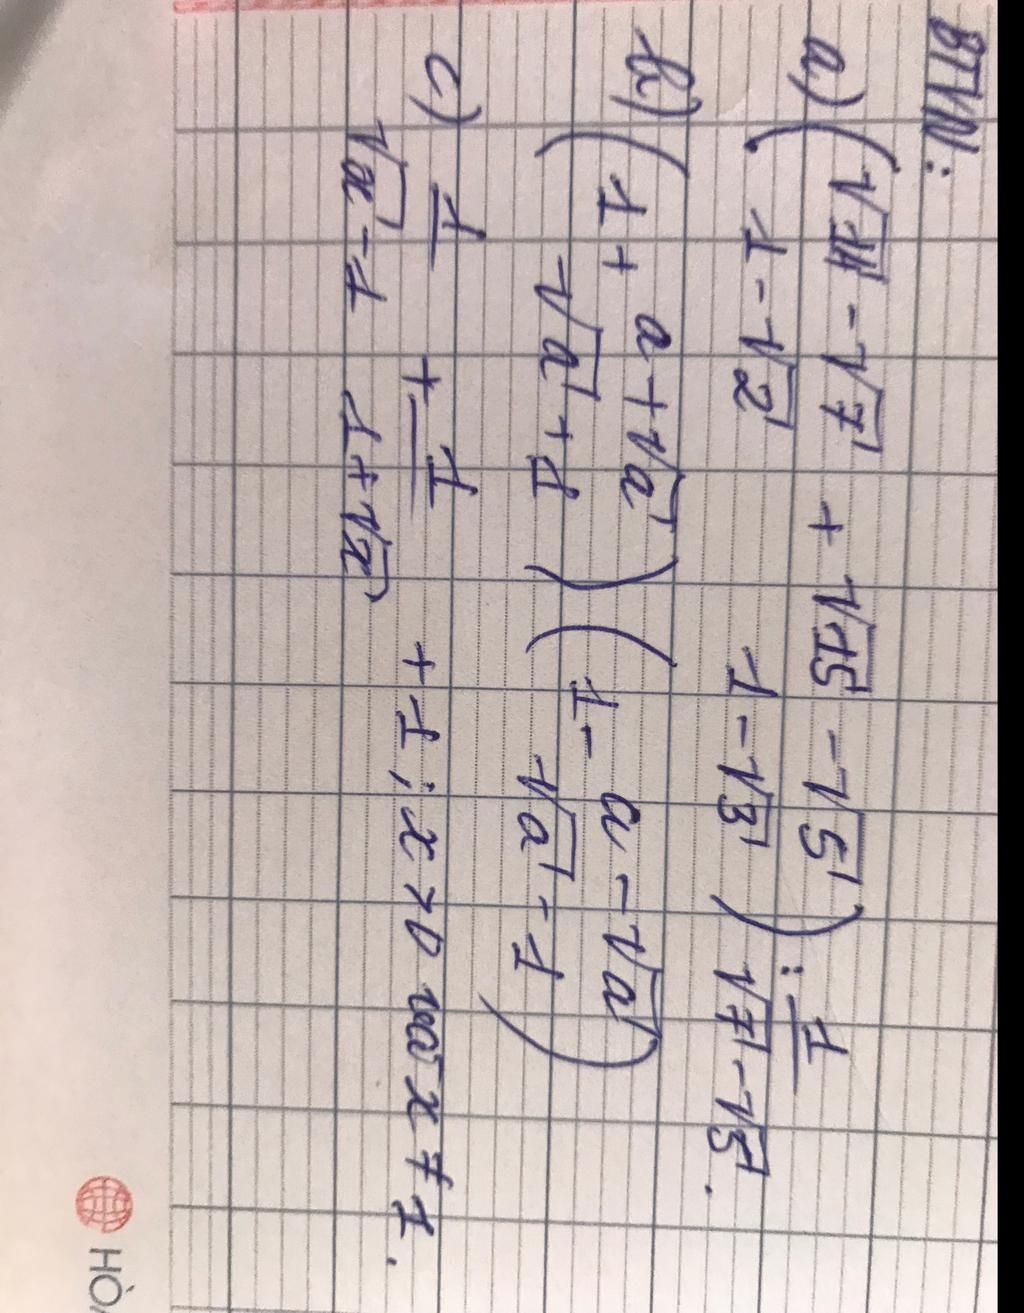 BTVN:
a) (√14 - √7 / 1 - √2 + √15 - √5 / 1 - √3) : 1 / √7 - √5.
b) (1 + a + √a / √a + 1) (1 - a - √a / √a - 1)
c) 1 / √x - 1 + 1 / 1 + √x + 1; x > 0 và x ≠ 1.